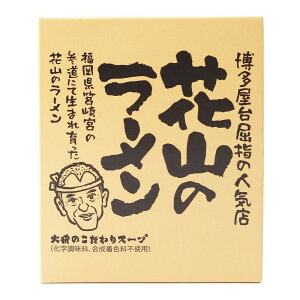 博多屋台屈指の人気店
花山の
ラーメン
福岡県筥崎宮の
参道にて生まれ育った
花山のラーメン
大将のこだわりスープ
(化学調味料、合成着色料不使用)